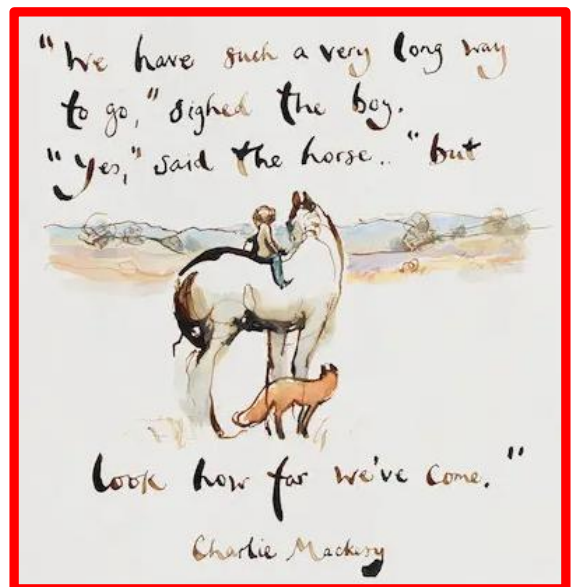 "We have such a very long way
to go," sighed the boy.
"Yes," said the horse.. "but
look how far we've come."
Charlie Mackesy